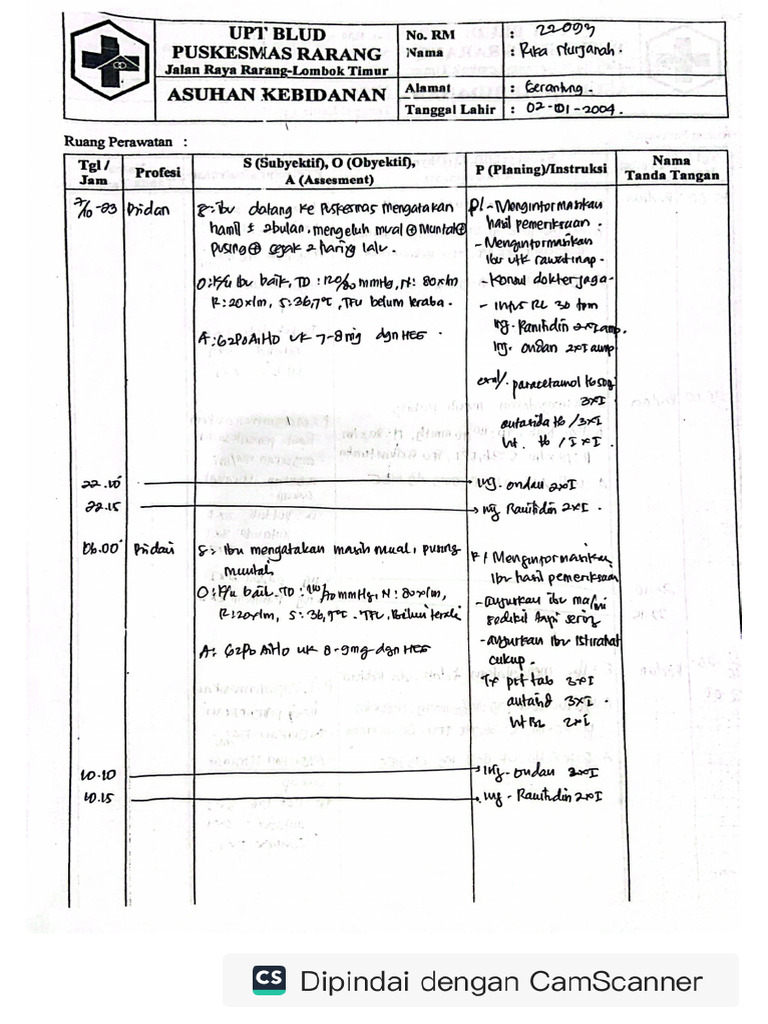 UPT BLUD
PUSKESMAS RARANG
Jalan Raya Rarang-Lombok Timur
ASUHAN KEBIDANAN
No. RM : 22099
Nama : Rika Nurjanah.
Alamat : Gerantung.
Tanggal Lahir : 02-01-2004.
Ruang Perawatan :
Tgl / Jam
Profesi
S (Subyektif), O (Obyektif),
A (Assesment)
P (Planing)/Instruksi
Nama
Tanda Tangan
Bidan
S: ibu datang ke Puskesmas mengatakan
hamil ± 2bulan, mengeluh mual ⊕ Muntah ⊕
Pusing ⊕ sejak 2 hari lalu.
O: K/u ibu baik, TD : 120/80 mmHg, N: 80x/m
R: 20x/m, S: 36,7°C, TFU belum teraba.
A: G2P0A1H0 UK 7-8 mg dgn HEG.
P/ - Menginformasikan
hasil pemeriksaan.
- Menginformasikan
Ibu utk rawat inap.
- Konsul dokter jaga
- Infus RL 30 tpm
Inj. Ranitidin 2x1 amp.
Inj. ondan 2x1 amp
oral/. paracetamol
3xI
antasida tb / 3xI
tb / I x I.
22.10
inj. ondan 2xI
22.15
inj Ranitidin 2xI.
06.00
Bidan
S: Ibu mengatakan masih mual, pusing
muntah
O: K/u baik. TD : 110/70 mmHg, N : 80x/m,
R: 20x/m, S: 36,9°C. TFU Belum teraba
A: G2P0A1H0 UK 8-9 mg dgn HEG
P/ Menginformasikan
Ibu hasil pemeriksaan
- anjurkan ibu ma/mi
sedikit tapi sering
- anjurkan Ibu Istirahat
cukup.
Tx pct tab 3xI
antasid 3xI.
2xI
10.10
Inj- ondan 2xI
10.15
inj - Ranitidin 2xI
CS Dipindai dengan CamScanner